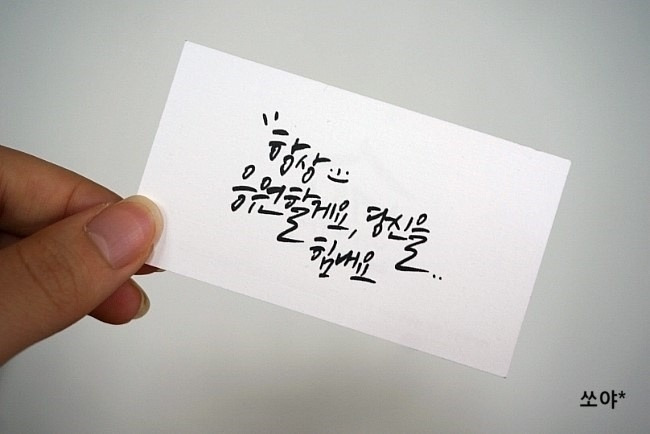 "항상 :)
응원할게요, 당신을..
힘내요
쏘야*